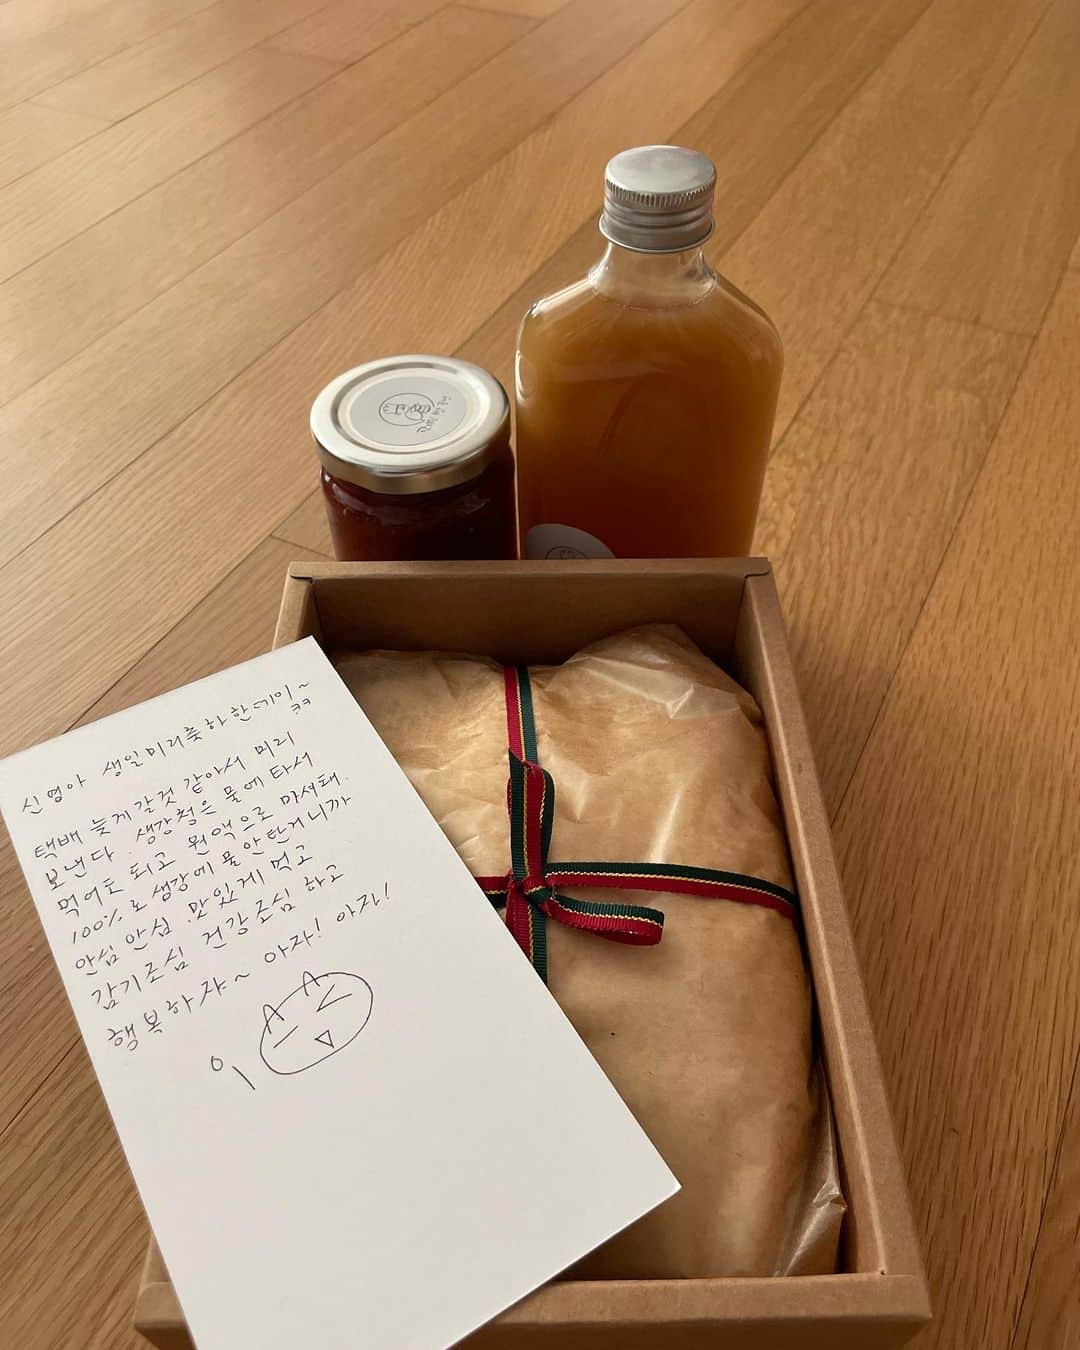 신영아 생일미리축하한데이~
ㅋㅋ
택배 늦게갈것 같아서 미리
보낸다. 생강청은 물에타서
먹어도 되고 원액으로 마셔돼.
100%로 생강에 물안탄거니까
안심안심. 맛있게 먹고
감기조심 건강조심 하고
행복하쟈~ 아자! 아자!